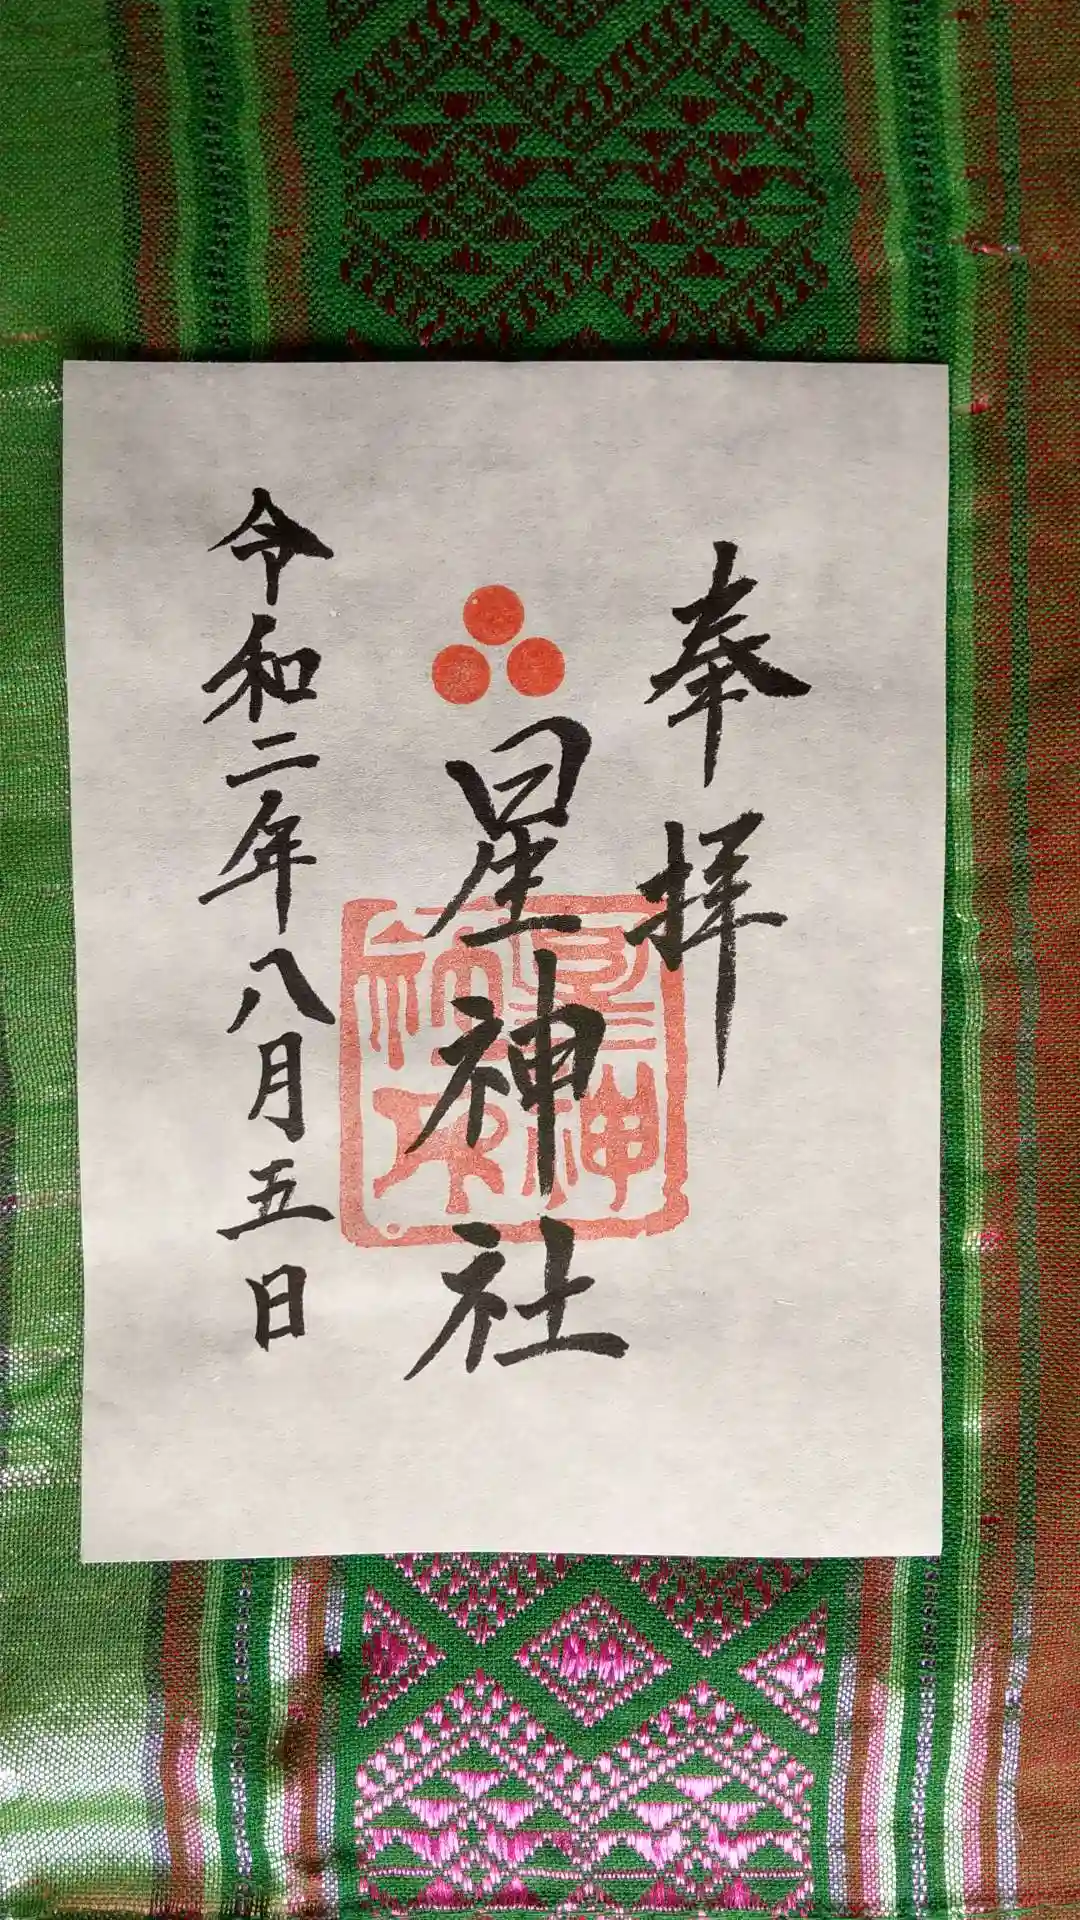 奉拝
星神社
令和二年八月五日
星神社印